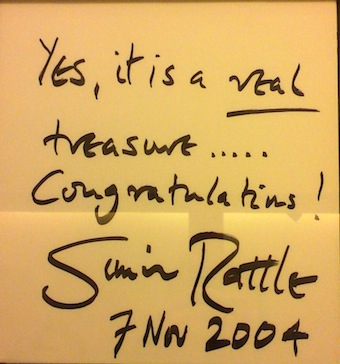 YES, it is a real
treasure.....
Congratulations!
Simon Rattle
7 Nov 2004